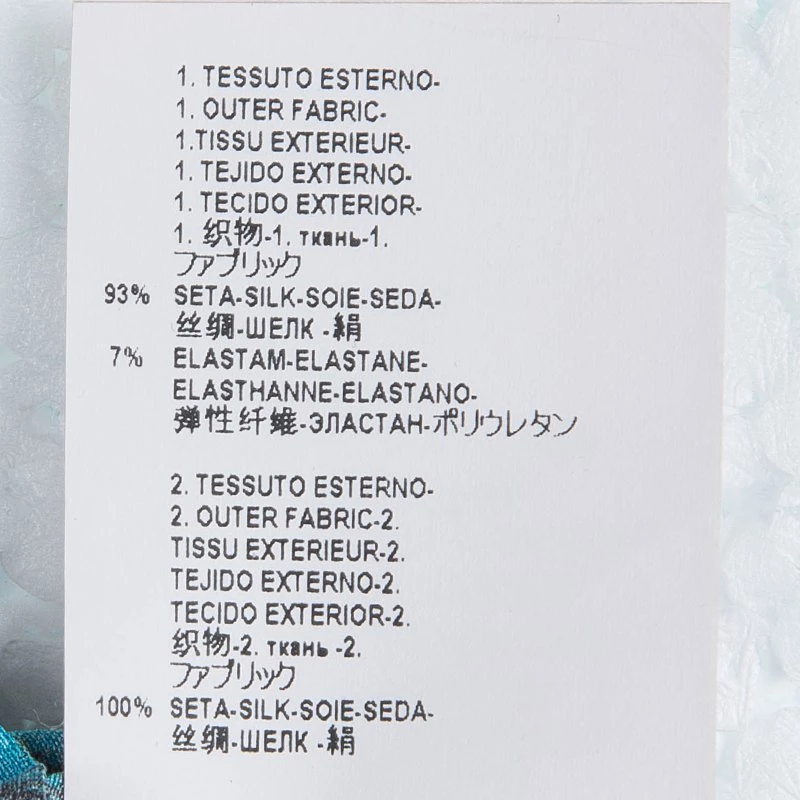 1. TESSUTO ESTERNO-
1. OUTER FABRIC-
1.TISSU EXTERIEUR-
1. TEJIDO EXTERNO-
1. TECIDO EXTERIOR-
1. 织物-1. ткань-1.
ファブリック
93% SETA-SILK-SOIE-SEDA-
丝绸-ШЕЛК -絹
7% ELASTAM-ELASTANE-
ELASTHANNE-ELASTANO-
弹性纤维-ЭЛАСТАН-ポリウレタン
2. TESSUTO ESTERNO-
2. OUTER FABRIC-2.
TISSU EXTERIEUR-2.
TEJIDO EXTERNO-2.
TECIDO EXTERIOR-2.
织物-2. ткань -2.
ファブリック
100% SETA-SILK-SOIE-SEDA-
丝绸-ШЕЛК -絹